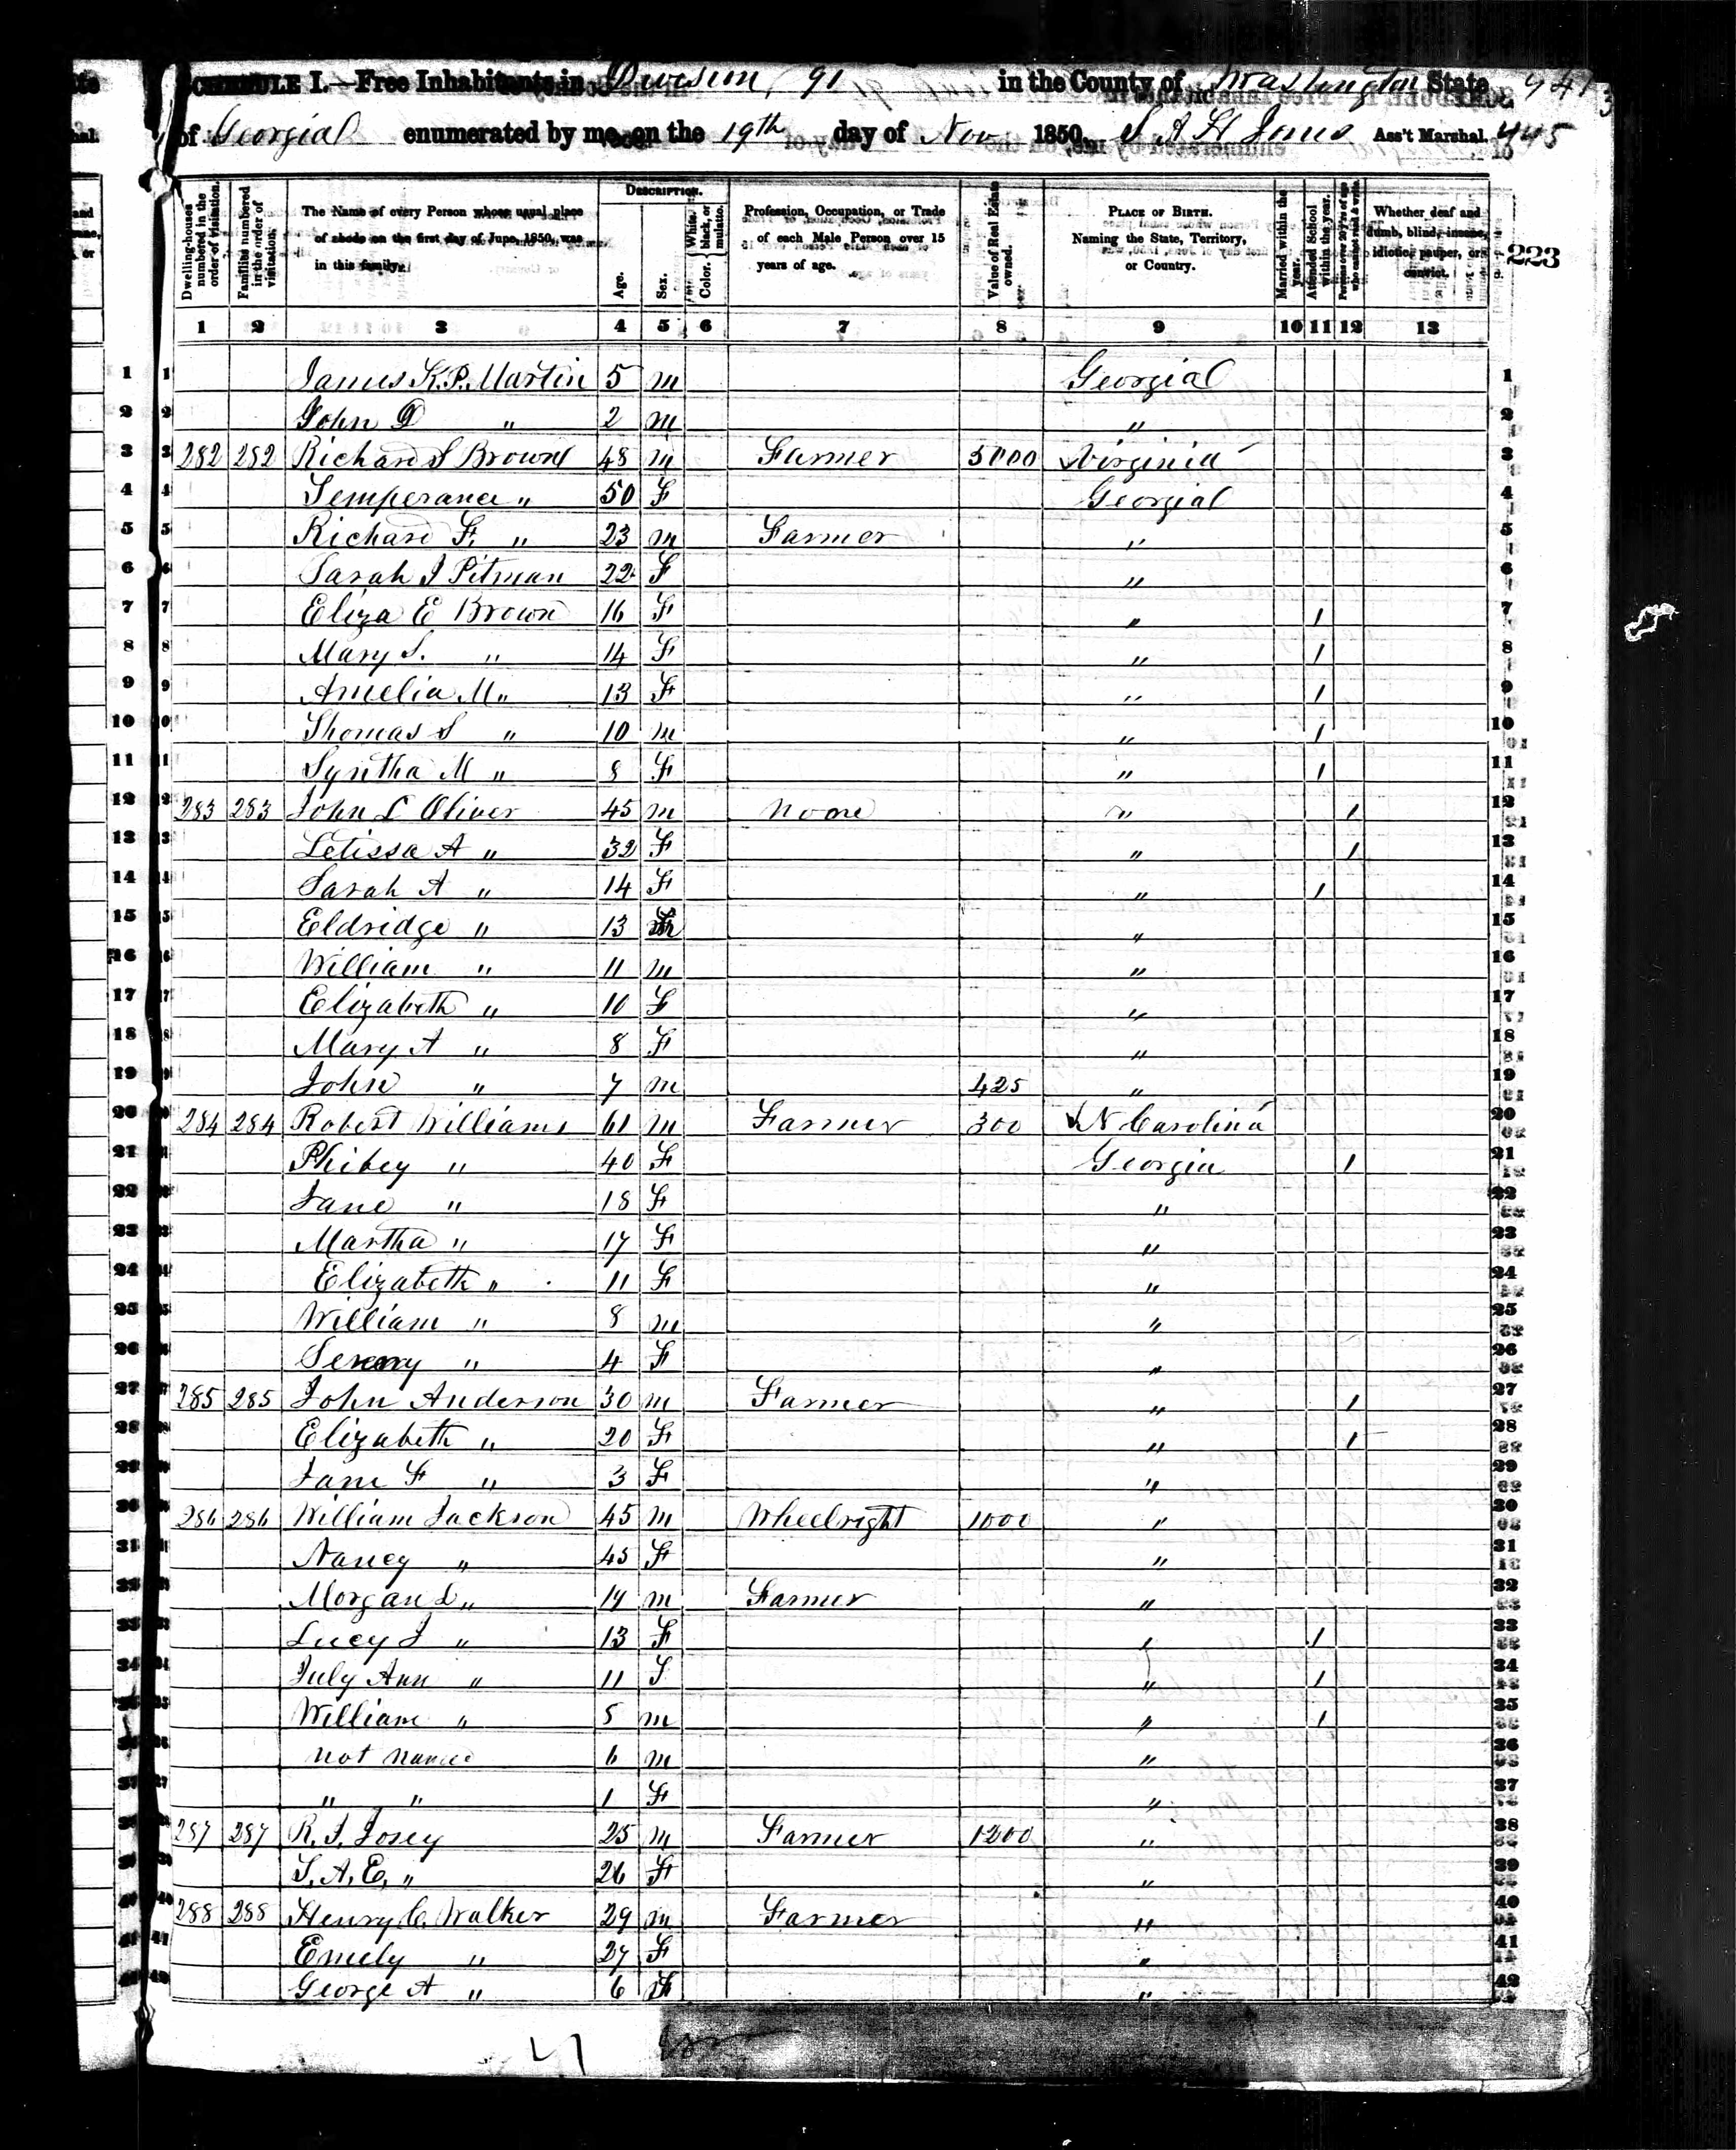 SCHEDULE I.—Free Inhabitants in Division, 91 in the County of Washington State
of Georgia enumerated by me, on the 19th day of Nov 1850. S A H Jones Ass't Marshal. 445
Dwelling-houses numbered in the order of visitation.
Families numbered in the order of visitation.
The Name of every Person whose usual place of abode on the first day of June, 1850, was in this family.
Description.
Age.
Sex.
Color. White, black, or mulatto.
Profession, Occupation, or Trade of each Male Person over 15 years of age.
Value of Real Estate owned.
Place of Birth. Naming the State, Territory, or Country.
Married within the year.
Attended School within the year.
Persons over 20 y'rs of age who cannot read & write.
Whether deaf and dumb, blind, insane, idiotic, pauper, or convict.
223
1 2 3 4 5 6 7 8 9 10 11 12 13
1 James K. P. Martin 5 m Georgia 1
2 John D " 2 m " 2
3 282 282 Richard S Brown 48 m Farmer 3000 Virginia 3
4 Temperance " 50 F Georgia 4
5 Richard F. " 23 m Farmer " 5
6 Sarah J Pitman 22 F " 6
7 Eliza E Brown 16 F " 1 7
8 Mary S. " 14 F " 1 8
9 Amelia M " 13 F " 1 9
10 Thomas S " 10 m " 1 10
11 Syntha M " 8 F " 1 11
12 283 283 John L Oliver 45 m None " 1 12
13 Letissa A " 32 F " 1 13
14 Sarah A " 14 F " 1 14
15 Eldridge " 13 m " 15
16 William " 11 m " 16
17 Elizabeth " 10 F " 17
18 Mary A " 8 F " 18
19 John " 7 m 425 " 19
20 284 284 Robert Williams 61 m Farmer 300 N Carolina 20
21 Phibey " 40 F Georgia 1 21
22 Jane " 18 F " 22
23 Martha " 17 F " 23
24 Elizabeth " 11 F " 24
25 William " 8 m " 25
26 " 4 F " 26
27 285 285 John Anderson 30 m Farmer " 1 27
28 Elizabeth " 20 F " 1 28
29 Jane F " 3 F " 29
30 286 286 William Jackson 45 m Wheelright 1000 " 30
31 Nancy " 45 F " 31
32 Morgan L " m Farmer " 32
33 Lucy J " 13 F " 1 33
34 July Ann " 11 F " 1 34
35 William " 5 m " 1 35
36 not named 6 m " 36
37 " " 1 F " 37
38 287 287 R. J. Josey 25 m Farmer 1200 " 38
39 S. A. E. " 26 F " 39
40 288 288 Henry C. Walker 29 m Farmer " 40
41 Emely " 27 F " 41
42 George A " 6 " 42